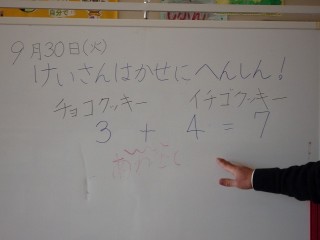 9月30日(火)
けいさんはかせにへんしん!
チョコクッキー イチゴクッキー
3 + 4 = 7